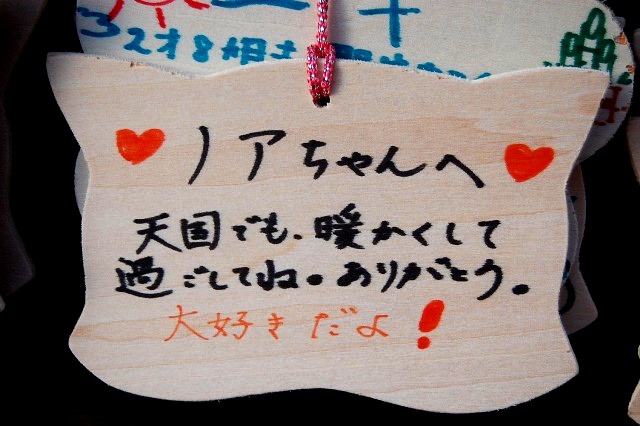 ノアちゃんへ
天国でも、暖かくして
過ごしてね。ありがとう。
大好きだよ!